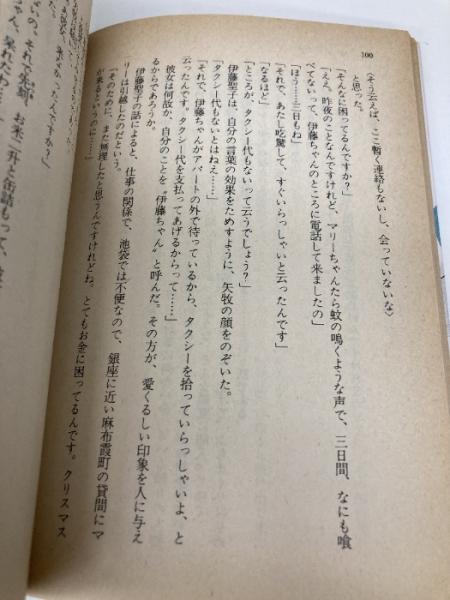 100
（そう云えば、ここ暫く連絡もないし、会っていないな）
と思った。
「そんなに困ってるんですか？」
「ええ。昨夜のことなんですけれど、マリーちゃんたら蚊の鳴くような声で、三日間、なにも喰
べてないって、伊藤ちゃんのところに電話して来ましたの」
「ほう……三日もね」
「それで、あたし吃驚して、すぐいらっしゃいと云ったんです」
「なるほど」
「ところが、タクシー代もないって云うでしょう？」
伊藤聖子は、自分の言葉の効果をためすように、矢牧の顔をのぞいた。
「タクシー代もないとはねえ……」
「それで、伊藤ちゃんがアパートの外で待っているから、タクシーを拾っていらっしゃいよ、と
云ったんです。タクシー代を支払ってあげるからって……」
彼女は何故か、自分のことを〝伊藤ちゃん〟と呼んだ。その方が、愛くるしい印象を人に与え
るからであろうか。
伊藤聖子の話によると、仕事の関係で、池袋では不便なので、銀座に近い麻布霞町の貸間にマ
リーは引越したのだという。
「そのために、また無理したと思うんですけれどね。とてもお金に困ってるんです。クリスマス
が来るというのに……」